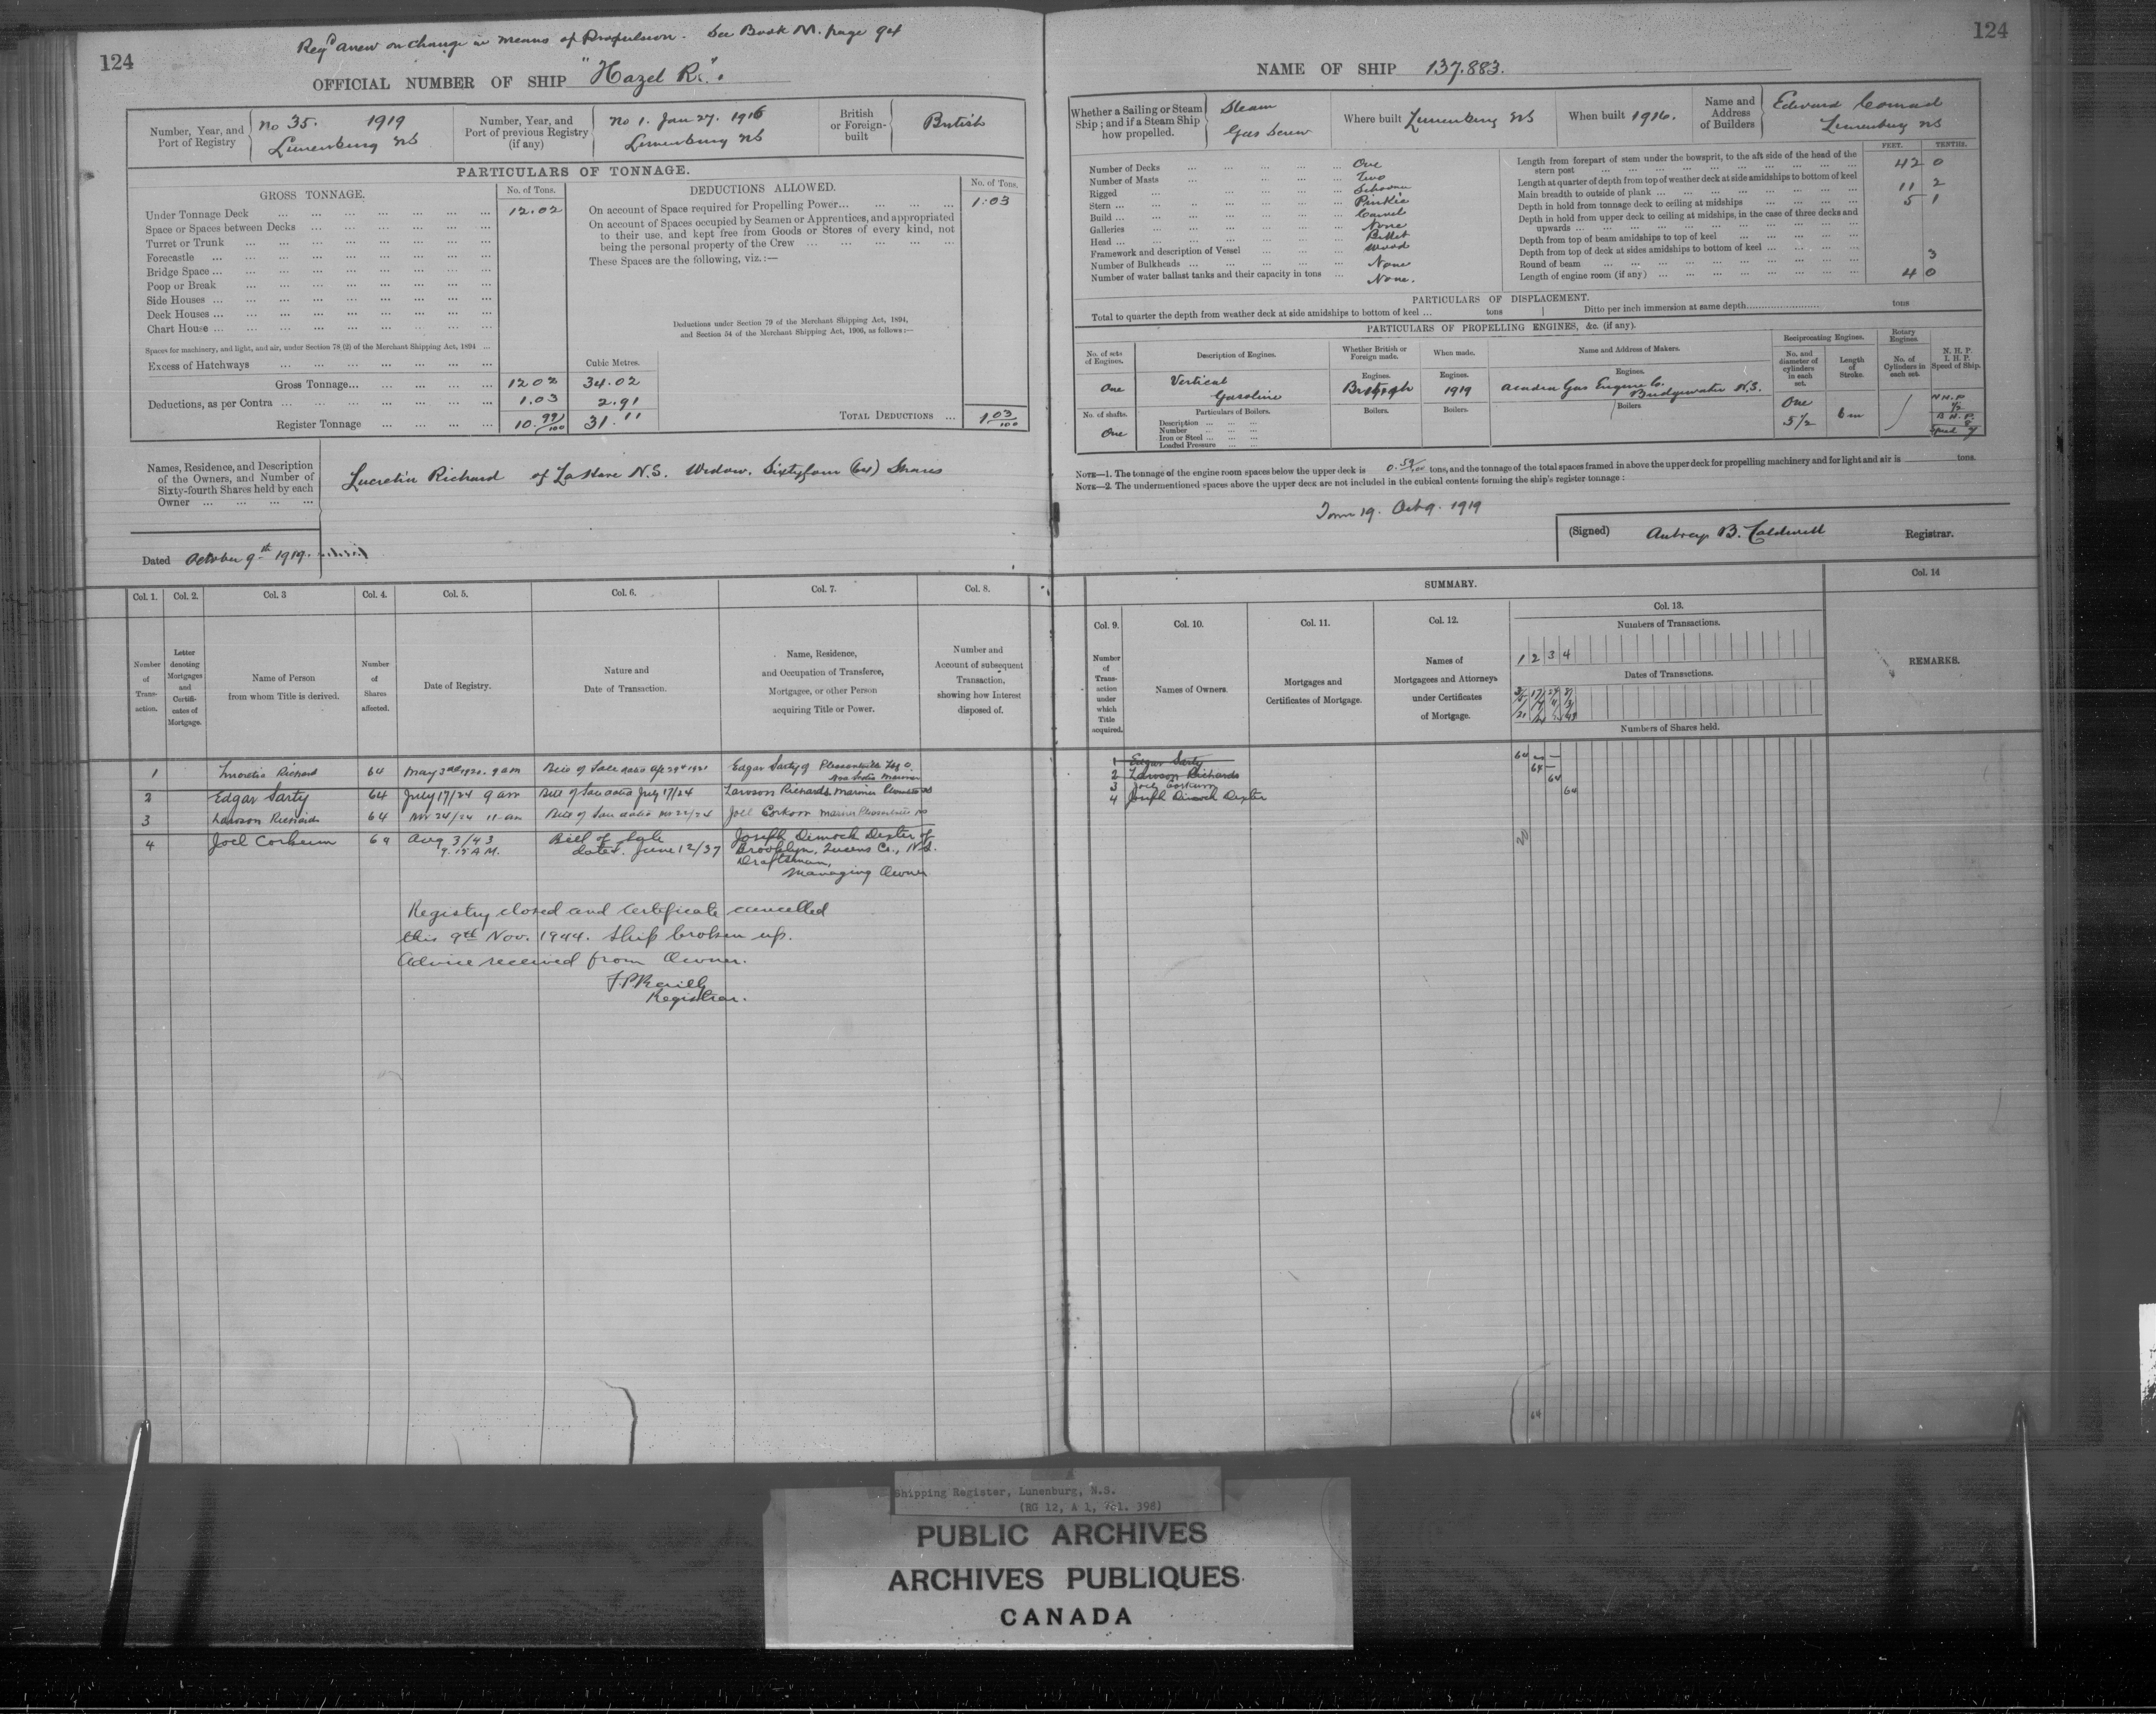 124
Regd anew on change in means of Propulsion. See Book M. page 94
OFFICIAL NUMBER OF SHIP "Hazel R."
Number, Year, and Port of Registry
No 35. 1919
Lunenburg NS
Number, Year, and Port of previous Registry (if any)
No 1. Jan 27. 1916
Lunenburg NS
British or Foreign-built
British
PARTICULARS OF TONNAGE.
GROSS TONNAGE. No. of Tons.
Under Tonnage Deck 12.02
Space or Spaces between Decks
Turret or Trunk
Forecastle
Bridge Space
Poop or Break
Side Houses
Deck Houses
Chart House
Spaces for machinery, and light, and air, under Section 78 (2) of the Merchant Shipping Act, 1894
Excess of Hatchways
Cubic Metres.
Gross Tonnage 12.02 34.02
Deductions, as per Contra 1.03 2.91
Register Tonnage 10.99/100 31.11
DEDUCTIONS ALLOWED. No. of Tons.
On account of Space required for Propelling Power 1.03
On account of Spaces occupied by Seamen or Apprentices, and appropriated
to their use, and kept free from Goods or Stores of every kind, not
being the personal property of the Crew
These Spaces are the following, viz.:—
Deductions under Section 79 of the Merchant Shipping Act, 1894,
and Section 54 of the Merchant Shipping Act, 1906, as follows:—
TOTAL DEDUCTIONS 1 03/100
Names, Residence, and Description
of the Owners, and Number of
Sixty-fourth Shares held by each
Owner
Lucretia Richard of LaHave N.S. Widow. Sixtyfour (64) Shares
Dated October 9th 1919.
Col. 1. Col. 2. Col. 3 Col. 4. Col. 5. Col. 6. Col. 7. Col. 8.
Number of Trans-action.
Letter denoting Mortgages and Certifi-cates of Mortgage.
Name of Person from whom Title is derived.
Number of Shares affected.
Date of Registry.
Nature and Date of Transaction.
Name, Residence, and Occupation of Transferee, Mortgagee, or other Person acquiring Title or Power.
Number and Account of subsequent Transaction, showing how Interest disposed of.
1 Lucretia Richard 64 May 3rd 1920. 9 am Bill of Sale dated Edgar Sarty of Pleasantville
Nova Scotia Mariner
2 Edgar Sarty 64 July 17/24 9 am Bill of Sale dated July 17/24 Lawson Richards Mariner
3 Lawson Richards 64 Nov 24/24 11 am Bill of Sale dated Nov 22/24 Joel Corkum Mariner Pleasantville NS
4 Joel Corkum 64 Aug 3/43 Bill of Sale Joseph Dimock Dexter of
9.15 A.M. dated June 12/37 Brooklyn, Queens Co., N.S.
Draftsman,
Managing Owner
Registry closed and Certificate cancelled
this 9th Nov. 1944. Ship broken up.
Advice received from Owner.
Registrar.
124
NAME OF SHIP 137.883.
Whether a Sailing or Steam Ship; and if a Steam Ship how propelled.
Steam
Gas Screw
Where built Lunenburg NS
When built 1916.
Name and Address of Builders
Edward Conrad
Lunenburg NS
Number of Decks One
Number of Masts Two
Rigged Schooner
Stern Pinkie
Build Carvel
Galleries None
Head Billet
Framework and description of Vessel Wood
Number of Bulkheads None
Number of water ballast tanks and their capacity in tons None.
FEET. TENTHS.
Length from forepart of stem under the bowsprit, to the aft side of the head of the
stern post 42 0
Length at quarter of depth from top of weather deck at side amidships to bottom of keel
Main breadth to outside of plank 11 2
Depth in hold from tonnage deck to ceiling at midships 5 1
Depth in hold from upper deck to ceiling at midships, in the case of three decks and
upwards
Depth from top of beam amidships to top of keel
Depth from top of deck at sides amidships to bottom of keel
Round of beam 3
Length of engine room (if any) 4 0
PARTICULARS OF DISPLACEMENT.
Total to quarter the depth from weather deck at side amidships to bottom of keel tons Ditto per inch immersion at same depth tons
PARTICULARS OF PROPELLING ENGINES, &c. (if any).
No. of sets of Engines.
Description of Engines.
Whether British or Foreign made.
When made.
Name and Address of Makers.
Reciprocating Engines.
No. and diameter of cylinders in each set.
Length of Stroke.
Rotary Engines.
No. of Cylinders in each set.
N. H. P.
I. H. P.
Speed of Ship.
Engines. Engines. Engines.
One Vertical British 1919 Acadia Gas Engine Co.
Gasoline Bridgewater N.S.
One
5 1/2 6 in
No. of shafts. Particulars of Boilers. Boilers. Boilers. Boilers
One
Description
Number
Iron or Steel
Loaded Pressure
N.H.P.
B.H.P.
8
Speed 7
NOTE—1. The tonnage of the engine room spaces below the upper deck is 0.59/100 tons, and the tonnage of the total spaces framed in above the upper deck for propelling machinery and for light and air is tons.
NOTE—2. The undermentioned spaces above the upper deck are not included in the cubical contents forming the ship's register tonnage:
Form 19. Oct 9. 1919
(Signed) Aubrey B. Caldwell Registrar.
SUMMARY.
Col. 9. Col. 10. Col. 11. Col. 12. Col. 13. Col. 14
Number of Trans-action under which Title acquired.
Names of Owners.
Mortgages and Certificates of Mortgage.
Names of Mortgagees and Attorneys under Certificates of Mortgage.
Numbers of Transactions.
1 2 3 4
Dates of Transactions.
Numbers of Shares held.
REMARKS.
1 Edgar Sarty 64
2 Lawson Richards 64
3 Joel Corkum 64
4 Joseph Dimock Dexter 64
64
Shipping Register, Lunenburg, N.S.
(RG 12, A 1, Vol. 398)
PUBLIC ARCHIVES
ARCHIVES PUBLIQUES
CANADA